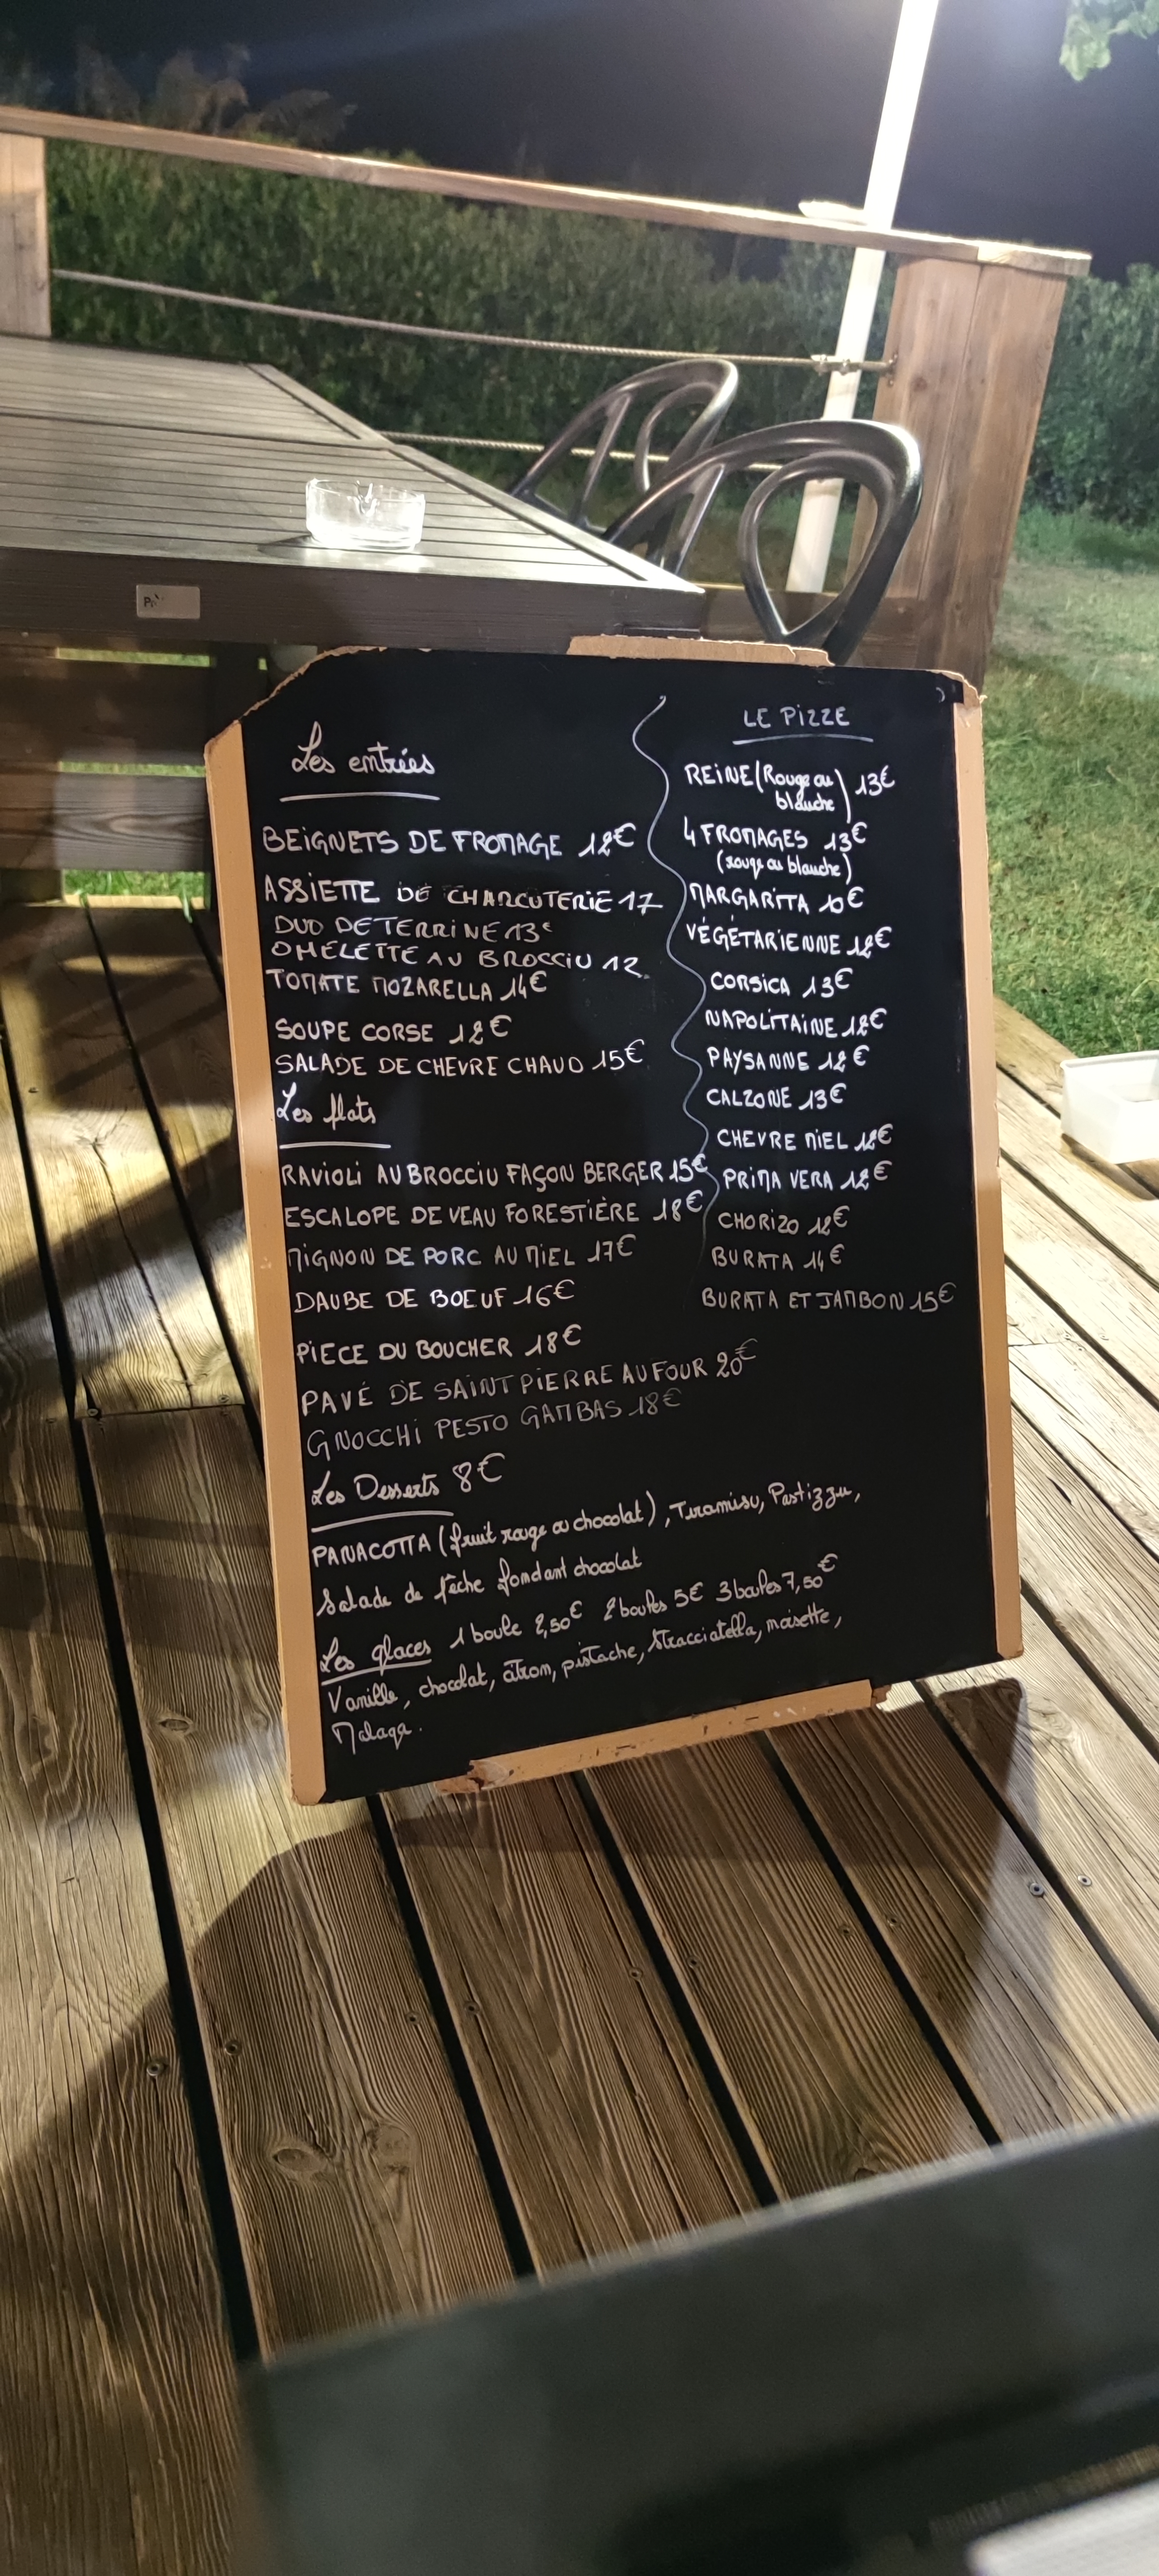 Les entrées
BEIGNETS DE FROMAGE 12€
ASSIETTE DE CHARCUTERIE 17
DUO DE TERRINE 13€
OMELETTE AU BROCCIU 12
TOMATE MOZARELLA 14€
SOUPE CORSE 12€
SALADE DE CHEVRE CHAUD 15€
Les plats
RAVIOLI AU BROCCIU FAÇON BERGER 15€
ESCALOPE DE VEAU FORESTIÈRE 18€
MIGNON DE PORC AU MIEL 17€
DAUBE DE BOEUF 16€
PIECE DU BOUCHER 18€
PAVÉ DE SAINT PIERRE AU FOUR 20€
GNOCCHI PESTO GAMBAS 18€
Les Desserts 8€
PANACOTTA (fruit rouge ou chocolat), Tiramisu, Pastizzu,
Salade de pêche fondant chocolat
Les glaces 1 boule 2,50€ 2 boules 5€ 3 boules 7,50€
Vanille, chocolat, citron, pistache, Stracciatella, noisette,
Malaga.
LE PIZZE
REINE (Rouge ou
blanche) 13€
4 FROMAGES 13€
(rouge ou blanche)
MARGARITA 10€
VÉGÉTARIENNE 12€
CORSICA 13€
NAPOLITAINE 12€
PAYSANNE 12€
CALZONE 13€
CHEVRE MIEL 12€
PRIMA VERA 12€
CHORIZO 12€
BURATA 14€
BURATA ET JAMBON 15€